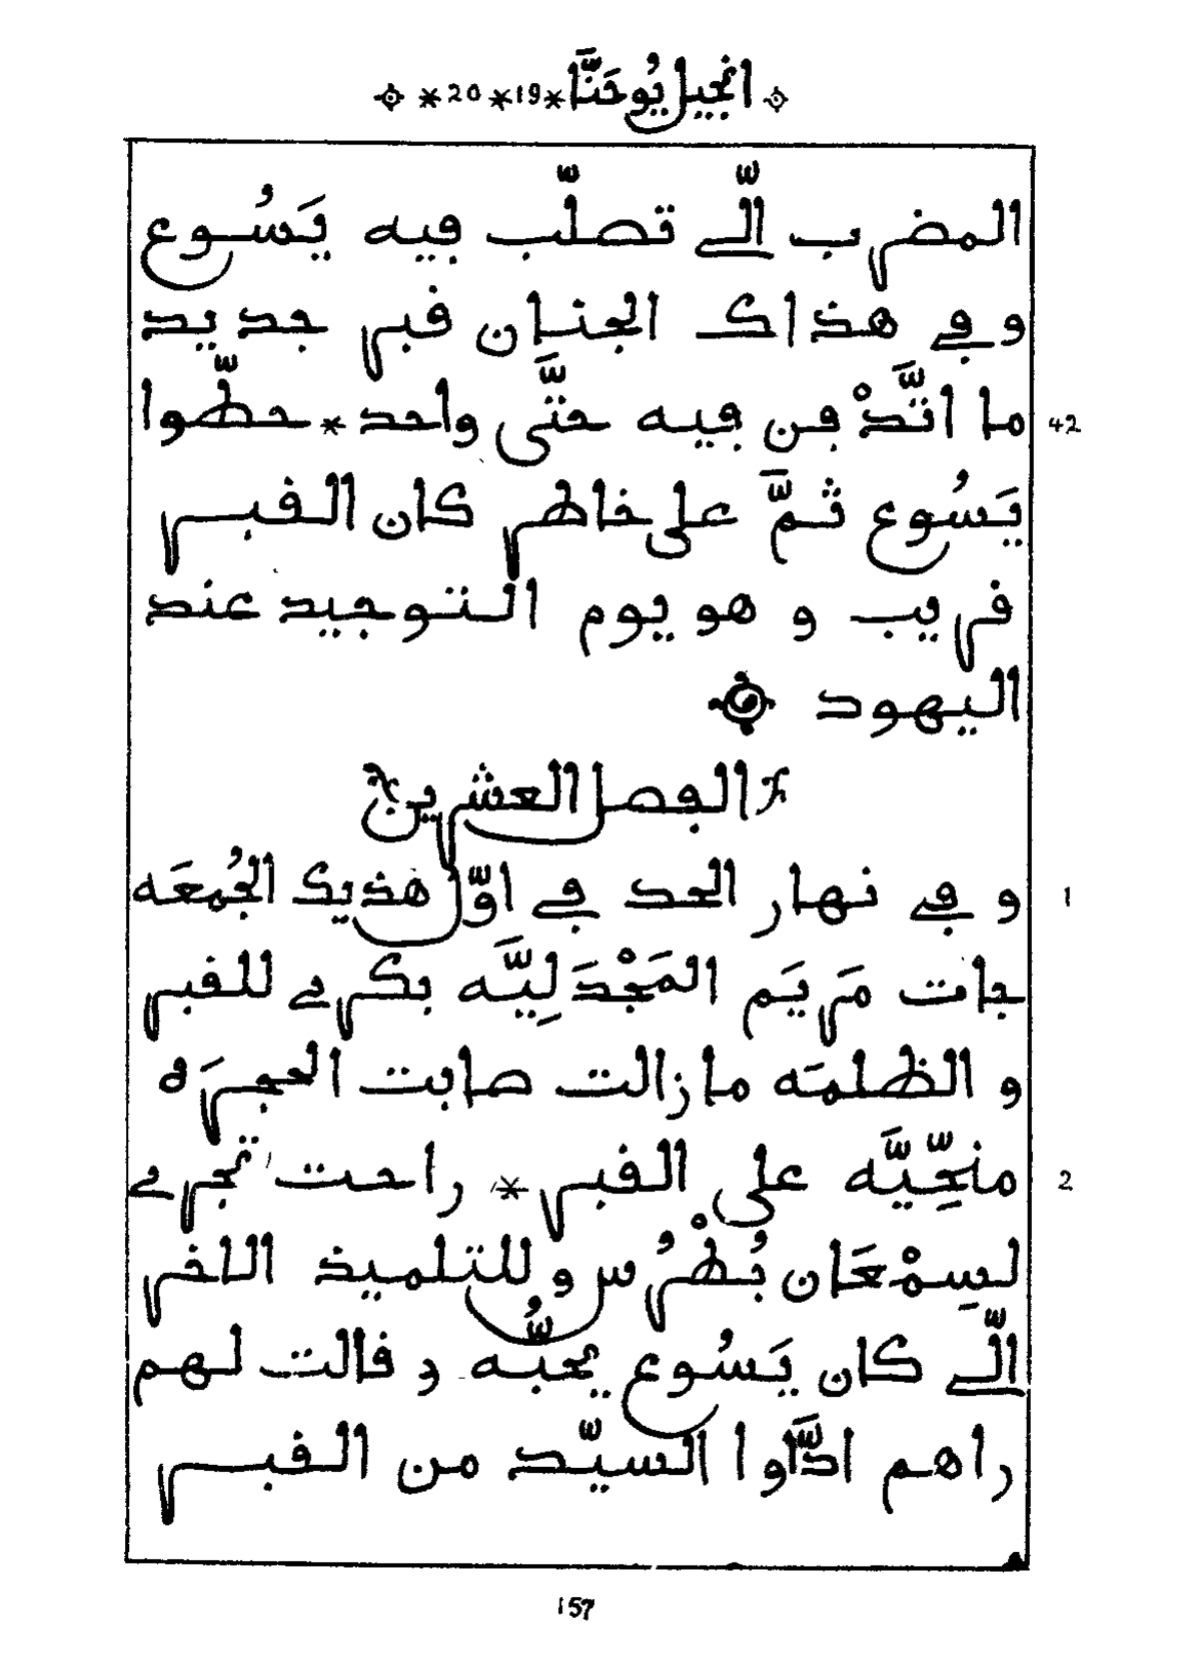 انجيل يُوحَنَّا *19*20*
المضرب الّي تصلّب فيه يَسُوع
و في هذاك الجنان قبر جديد
ما اتَّدْفن فيه حتَّى واحد * حطّوا 42
يَسُوع ثمَّ على خاطر كان القبر
قريب و هو يوم التوجيد عند
اليهود
الفصل العشرين
و في نهار الحد في اوّل هذيك الجُمعَه 1
جات مَريَم المَجْدَلِيَّه بكري للقبر
و الظلمَه مازالت صابت الحجرَه
منحِّيَّه على القبر * راحت تجري 2
لسِمْعَان بُطْرُس و للتلميذ اللخر
الّي كان يَسُوع يحبُّه و قالت لهم
راهم ادَّاوا السيّد من القبر
157